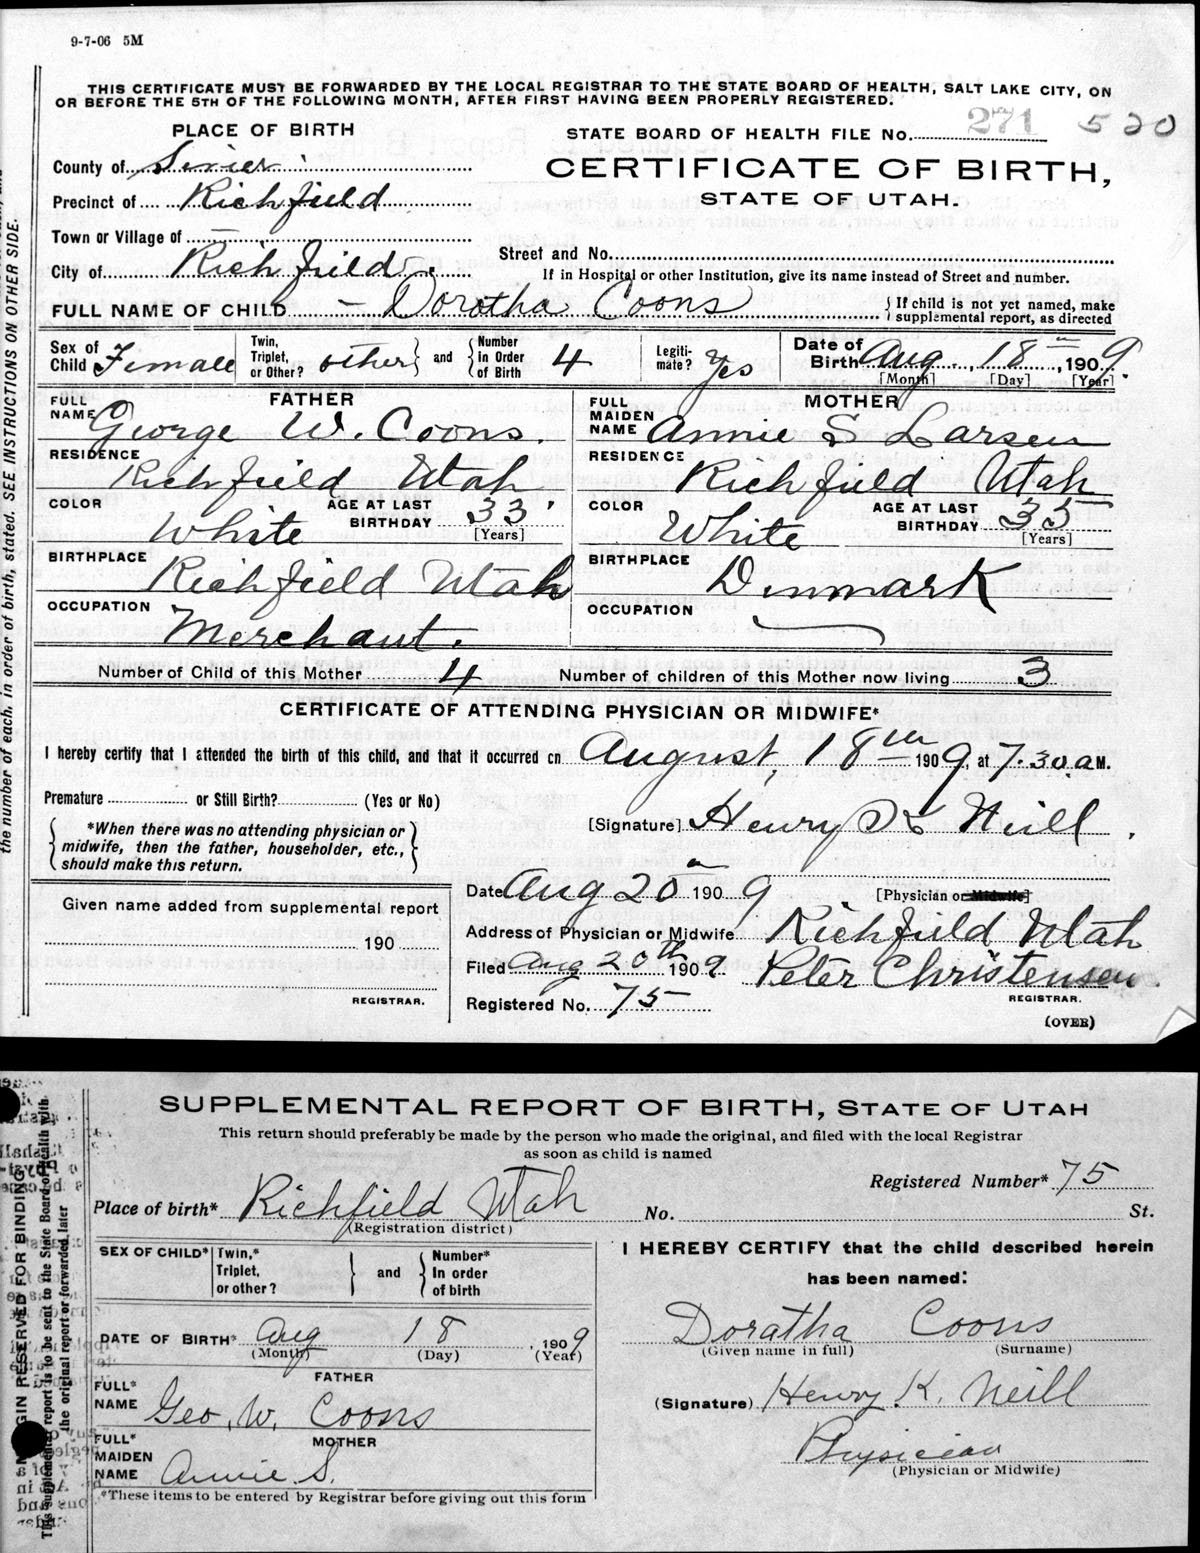 9-7-06 5M
THIS CERTIFICATE MUST BE FORWARDED BY THE LOCAL REGISTRAR TO THE STATE BOARD OF HEALTH, SALT LAKE CITY, ON
OR BEFORE THE 5TH OF THE FOLLOWING MONTH, AFTER FIRST HAVING BEEN PROPERLY REGISTERED.
PLACE OF BIRTH
STATE BOARD OF HEALTH FILE No. 271 520
County of Sevier
CERTIFICATE OF BIRTH,
Precinct of Richfield
STATE OF UTAH.
Town or Village of
Street and No.
City of Richfield
If in Hospital or other Institution, give its name instead of Street and number.
FULL NAME OF CHILD - Dorotha Coons
If child is not yet named, make
supplemental report, as directed
Sex of Child Female
Twin, Triplet, or Other? other and Number in Order of Birth 4
Legitimate? Yes
Date of Birth Aug. 18th, 1909.
[Month] [Day] [Year]
FATHER
FULL NAME George W. Coons.
RESIDENCE Richfield Utah
COLOR White AGE AT LAST BIRTHDAY 33 [Years]
BIRTHPLACE Richfield Utah
OCCUPATION Merchant.
MOTHER
FULL MAIDEN NAME Annie S Larsen
RESIDENCE Richfield Utah
COLOR White AGE AT LAST BIRTHDAY 35 [Years]
BIRTHPLACE Denmark
OCCUPATION
Number of Child of this Mother 4 Number of children of this Mother now living 3
CERTIFICATE OF ATTENDING PHYSICIAN OR MIDWIFE*
I hereby certify that I attended the birth of this child, and that it occurred on August, 18th 1909, at 7.30 a M.
Premature or Still Birth? (Yes or No)
*When there was no attending physician or
midwife, then the father, householder, etc.,
should make this return.
[Signature] Henry K Neill.
Date Aug 20 1909 [Physician or Midwife]
Given name added from supplemental report
190
REGISTRAR.
Address of Physician or Midwife Richfield Utah
Filed Aug 20th 1909. Peter Christensen
Registered No. 75
REGISTRAR.
(OVER)
the number of each, in order of birth, stated. SEE INSTRUCTIONS ON OTHER SIDE.
SUPPLEMENTAL REPORT OF BIRTH, STATE OF UTAH
This return should preferably be made by the person who made the original, and filed with the local Registrar
as soon as child is named
Registered Number* 75
Place of birth* Richfield Utah No. St.
(Registration district)
SEX OF CHILD* Twin,* Triplet, or other? and Number* In order of birth
DATE OF BIRTH* Aug 18, 1909
(Month) (Day) (Year)
FATHER
FULL* NAME Geo. W. Coons
MOTHER
FULL* MAIDEN NAME Annie S.
*These items to be entered by Registrar before giving out this form
I HEREBY CERTIFY that the child described herein
has been named:
Doratha Coons
(Given name in full) (Surname)
(Signature) Henry K. Neill
Physician
(Physician or Midwife)
GIN RESERVED FOR BINDING
This supplemental report is to be sent to the State Board of Health with
the original report or forwarded later